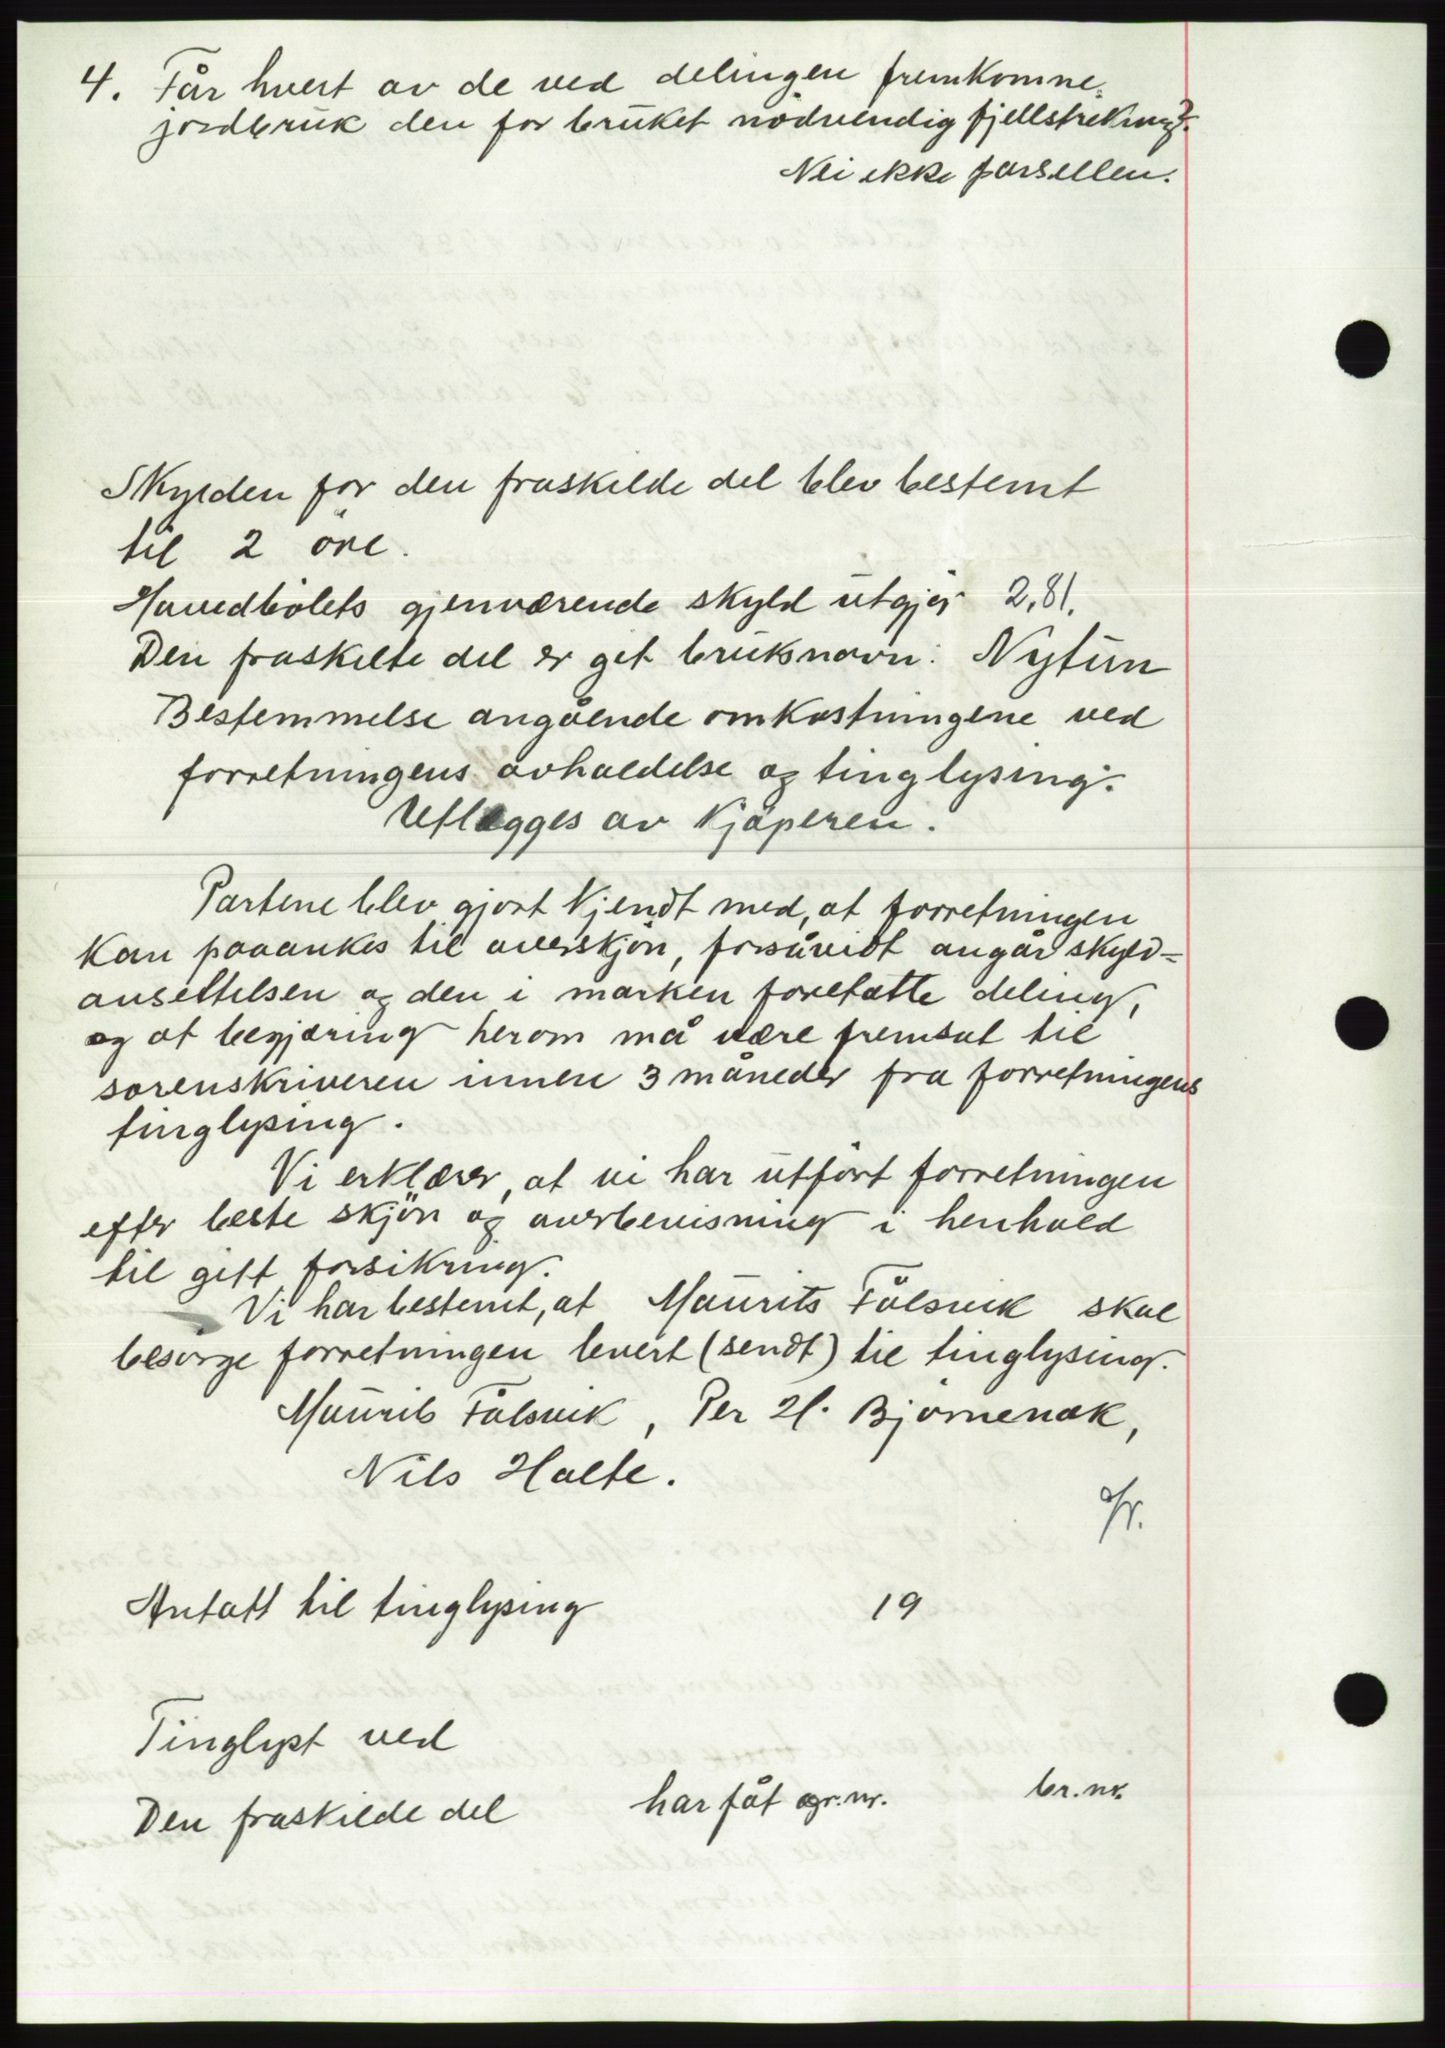 4. Får hvert av de ved delingen fremkomne
jordbruk den for bruket nödvendig fjellstrekning?
Nei ikke parsellen.
Skylden for den fraskilde del blev bestemt
til 2 öre.
Hovedbölets gjenværende skyld utgjör 2,81.
Den fraskilte del er git bruksnavn: Nytun
Bestemmelse angående omkostningene ved
forretningens avholdelse og tinglysing.
Utlægges av kjöperen.
Partene blev gjort kjendt med, at forretningen
kan paaankes til overskjön, forsåvidt angår skyld-
ansettelsen og den i marken foretatte deling,
og at begjæring herom må være fremsat til
sorenskriveren innen 3 måneder fra forretningens
tinglysing.
Vi erklærer, at vi har utfört forretningen
efter beste skjön og overbevisning i henhold
til gitt forsikring.
Vi har bestemt, at Maurits Fålsvik skal
besörge forretningen levert (sendt) til tinglysing.
Maurits Fålsvik, Per H. Björnenak,
Nils Holte.
Antatt til tinglysing 19
Tinglyst ved
Den fraskilde del har fåt gr.nr. br.nr.